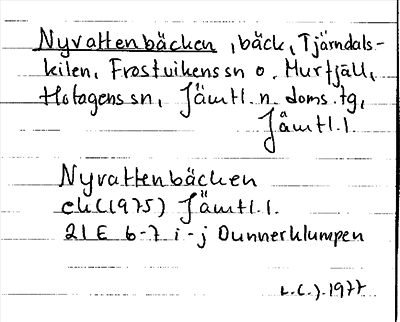 Nyvattenbäcken, bäck, Tjärndals-
kilen, Frostvikens sn o. Murfjäll,
Hotagens sn, Jämtl. n. doms. tg,
Jämtl. l.
Nyvattenbäcken
ek (1975) Jämtl. l.
21 E 6-7 i-j Dunnerklumpen
1977